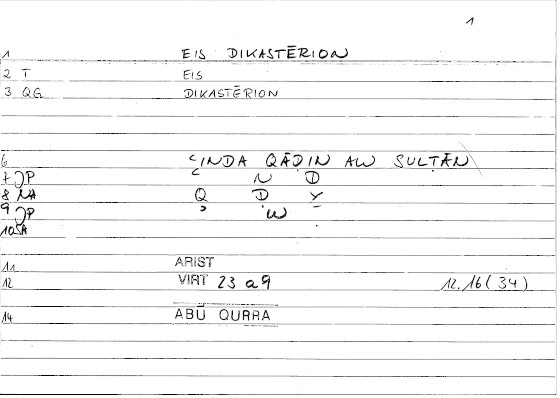 1
1 EIS DIKASTĒRION
2 T EIS
3 QG DIKASTĒRION
6 ʿINDA QĀḌIN AW SULṬĀN
7 JP ʿ N D
8 NA Q Ḍ Y
9 JP ʾ W
10 SA
11 ARIST
12 VIRT 23 a9 12.16 (34)
14 ABŪ QURRA